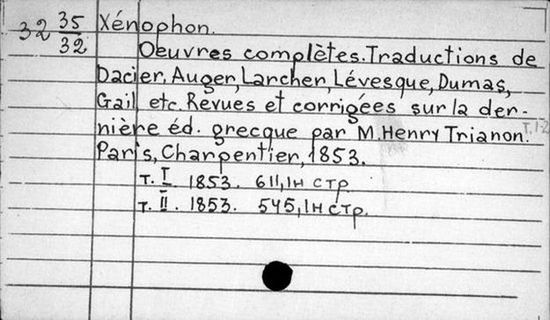 32 35/32 Xénophon.
Oeuvres complètes. Traductions de
Dacier, Auger, Larcher, Lévesque, Dumas,
Gail etc. Revues et corrigées sur la der-
nière éd. grecque par M. Henry Trianon.
T. 1-2
Paris, Charpentier, 1853.
т. I 1853. 611, 1н стр.
т. II. 1853. 545, 1н стр.